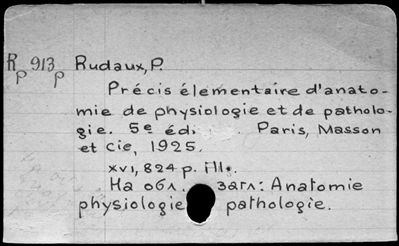 Rp 913p Rudaux, P.
Précis élementaire d'anato-
mie de physiologie et de patholo-
gie. 5e éd. Paris, Masson
et cie, 1925.
xvi, 824 p. ill.
На обл. загл: Anatomie
physiologie pathologie.